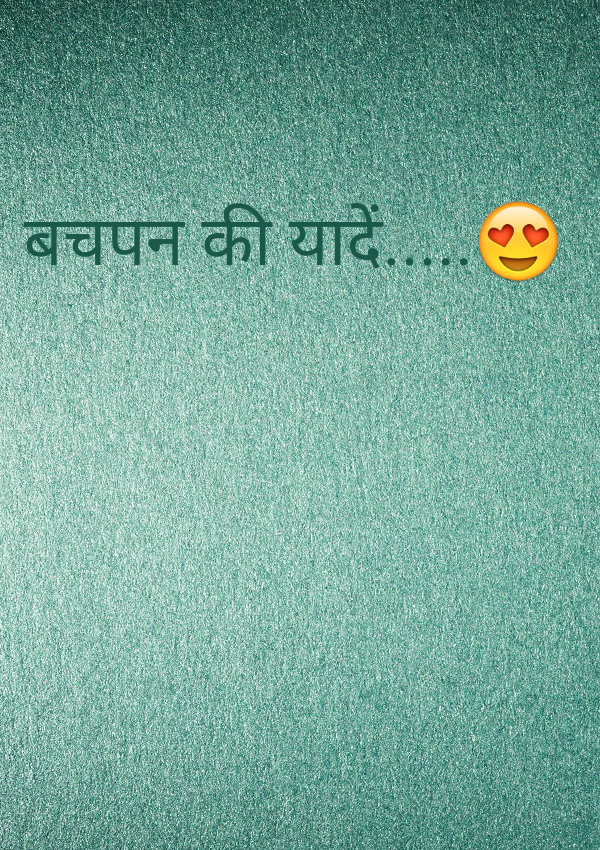 बचपन की यादें.....😍